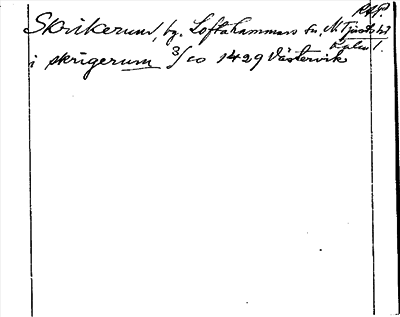 RAP.
Skrikerum, by. Loftahammars sn, N. Tjust hd
Kalm l.
i skrigerum 3/10 1429 Västervik